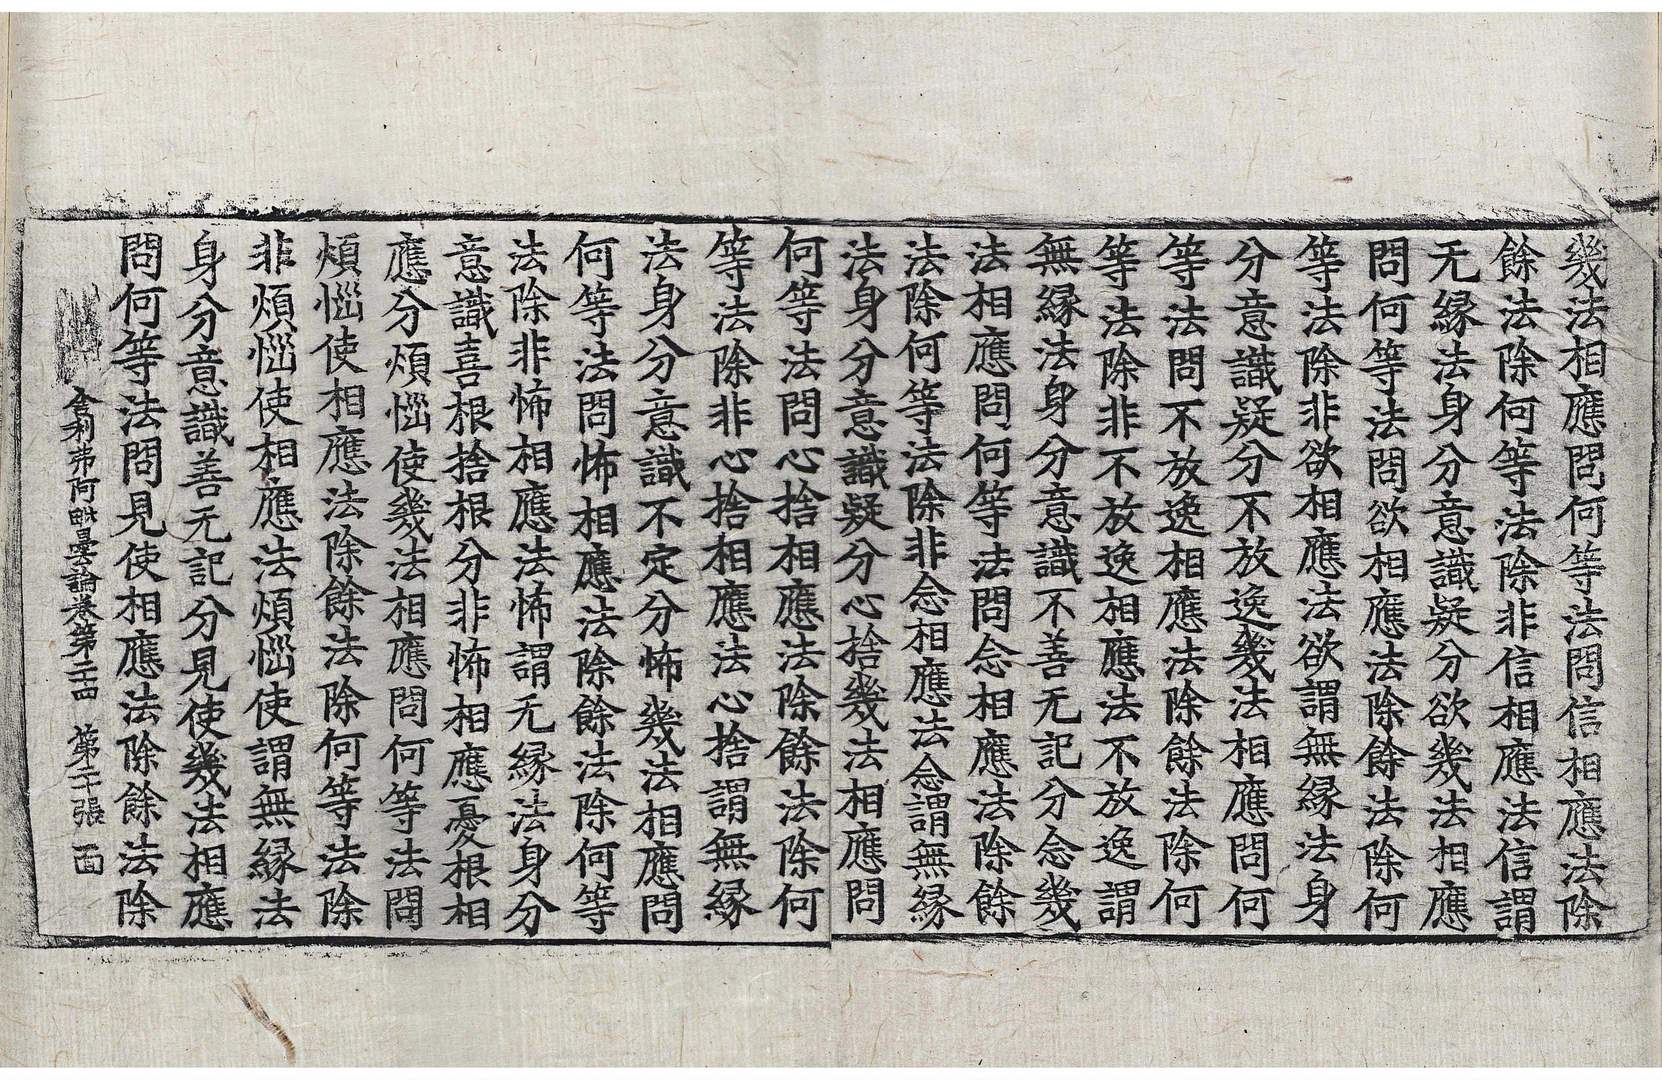 幾法相應問何等法問信相應法除
餘法除何等法除非信相應法信謂
无縁法身分意識疑分欲幾法相應
問何等法問欲相應法除餘法除何
等法除非欲相應法欲謂無縁法身
分意識疑分不放逸幾法相應問何
等法問不放逸相應法除餘法除何
等法除非不放逸相應法不放逸謂
無縁法身分意識不善无記分念幾
法相應問何等法問念相應法除餘
法除何等法除非念相應法念謂無縁
法身分意識疑分心捨幾法相應問
何等法問心捨相應法除餘法除何
等法除非心捨相應法心捨謂無縁
法身分意識不定分怖幾法相應問
何等法問怖相應法除餘法除何等
法除非怖相應法怖謂无縁法身分
意識喜根捨根分非怖相應憂根相
應分煩惱使幾法相應問何等法問
煩惱使相應法除餘法除何等法除
非煩惱使相應法煩惱使謂無縁法
身分意識善无記分見使幾法相應
問何等法問見使相應法除餘法除
舍利弗阿毗曇論卷第二十四 第二十張 面